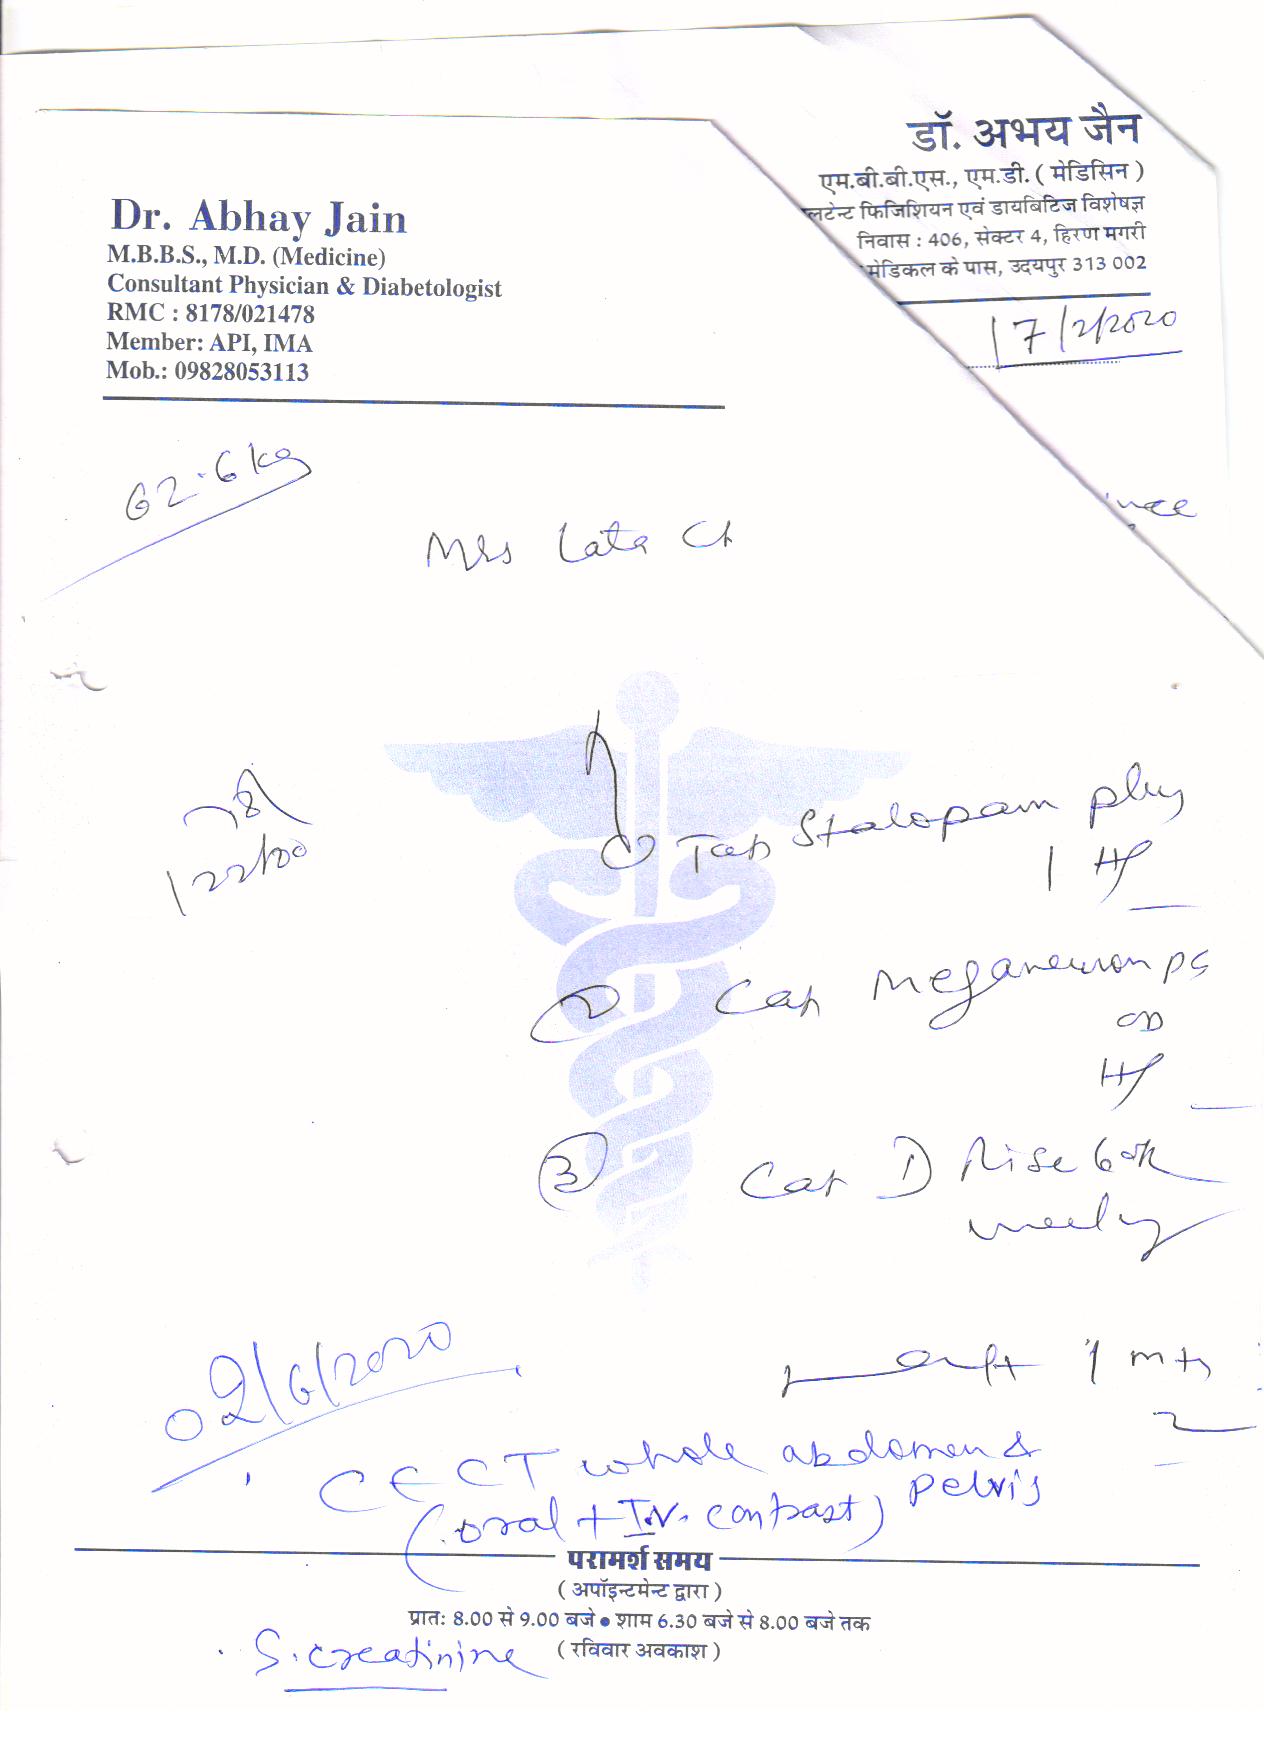 डॉ. अभय जैन
एम.बी.बी.एस., एम.डी. ( मेडिसिन )
लटेन्ट फिजिशियन एवं डायबिटिज विशेषज्ञ
निवास : 406, सेक्टर 4, हिरण मगरी
मेडिकल के पास, उदयपुर 313 002
Dr. Abhay Jain
M.B.B.S., M.D. (Medicine)
Consultant Physician & Diabetologist
RMC : 8178/021478
Member: API, IMA
Mob.: 09828053113
17/2/2020
62.6 kg
Mrs Lata Ch
Tab Stalopam plus
1 HS
122/80
② Cap Meganeuron PG
OD
HS
③ Cap D Rise 60K
weekly
1 mth
02/6/2020
CECT whole abdomen &
Pelvis
(oral + I.V. contrast)
परामर्श समय
( अपॉइन्टमेन्ट द्वारा )
प्रातः 8.00 से 9.00 बजे ● शाम 6.30 बजे से 8.00 बजे तक
( रविवार अवकाश )
. S. creatinine